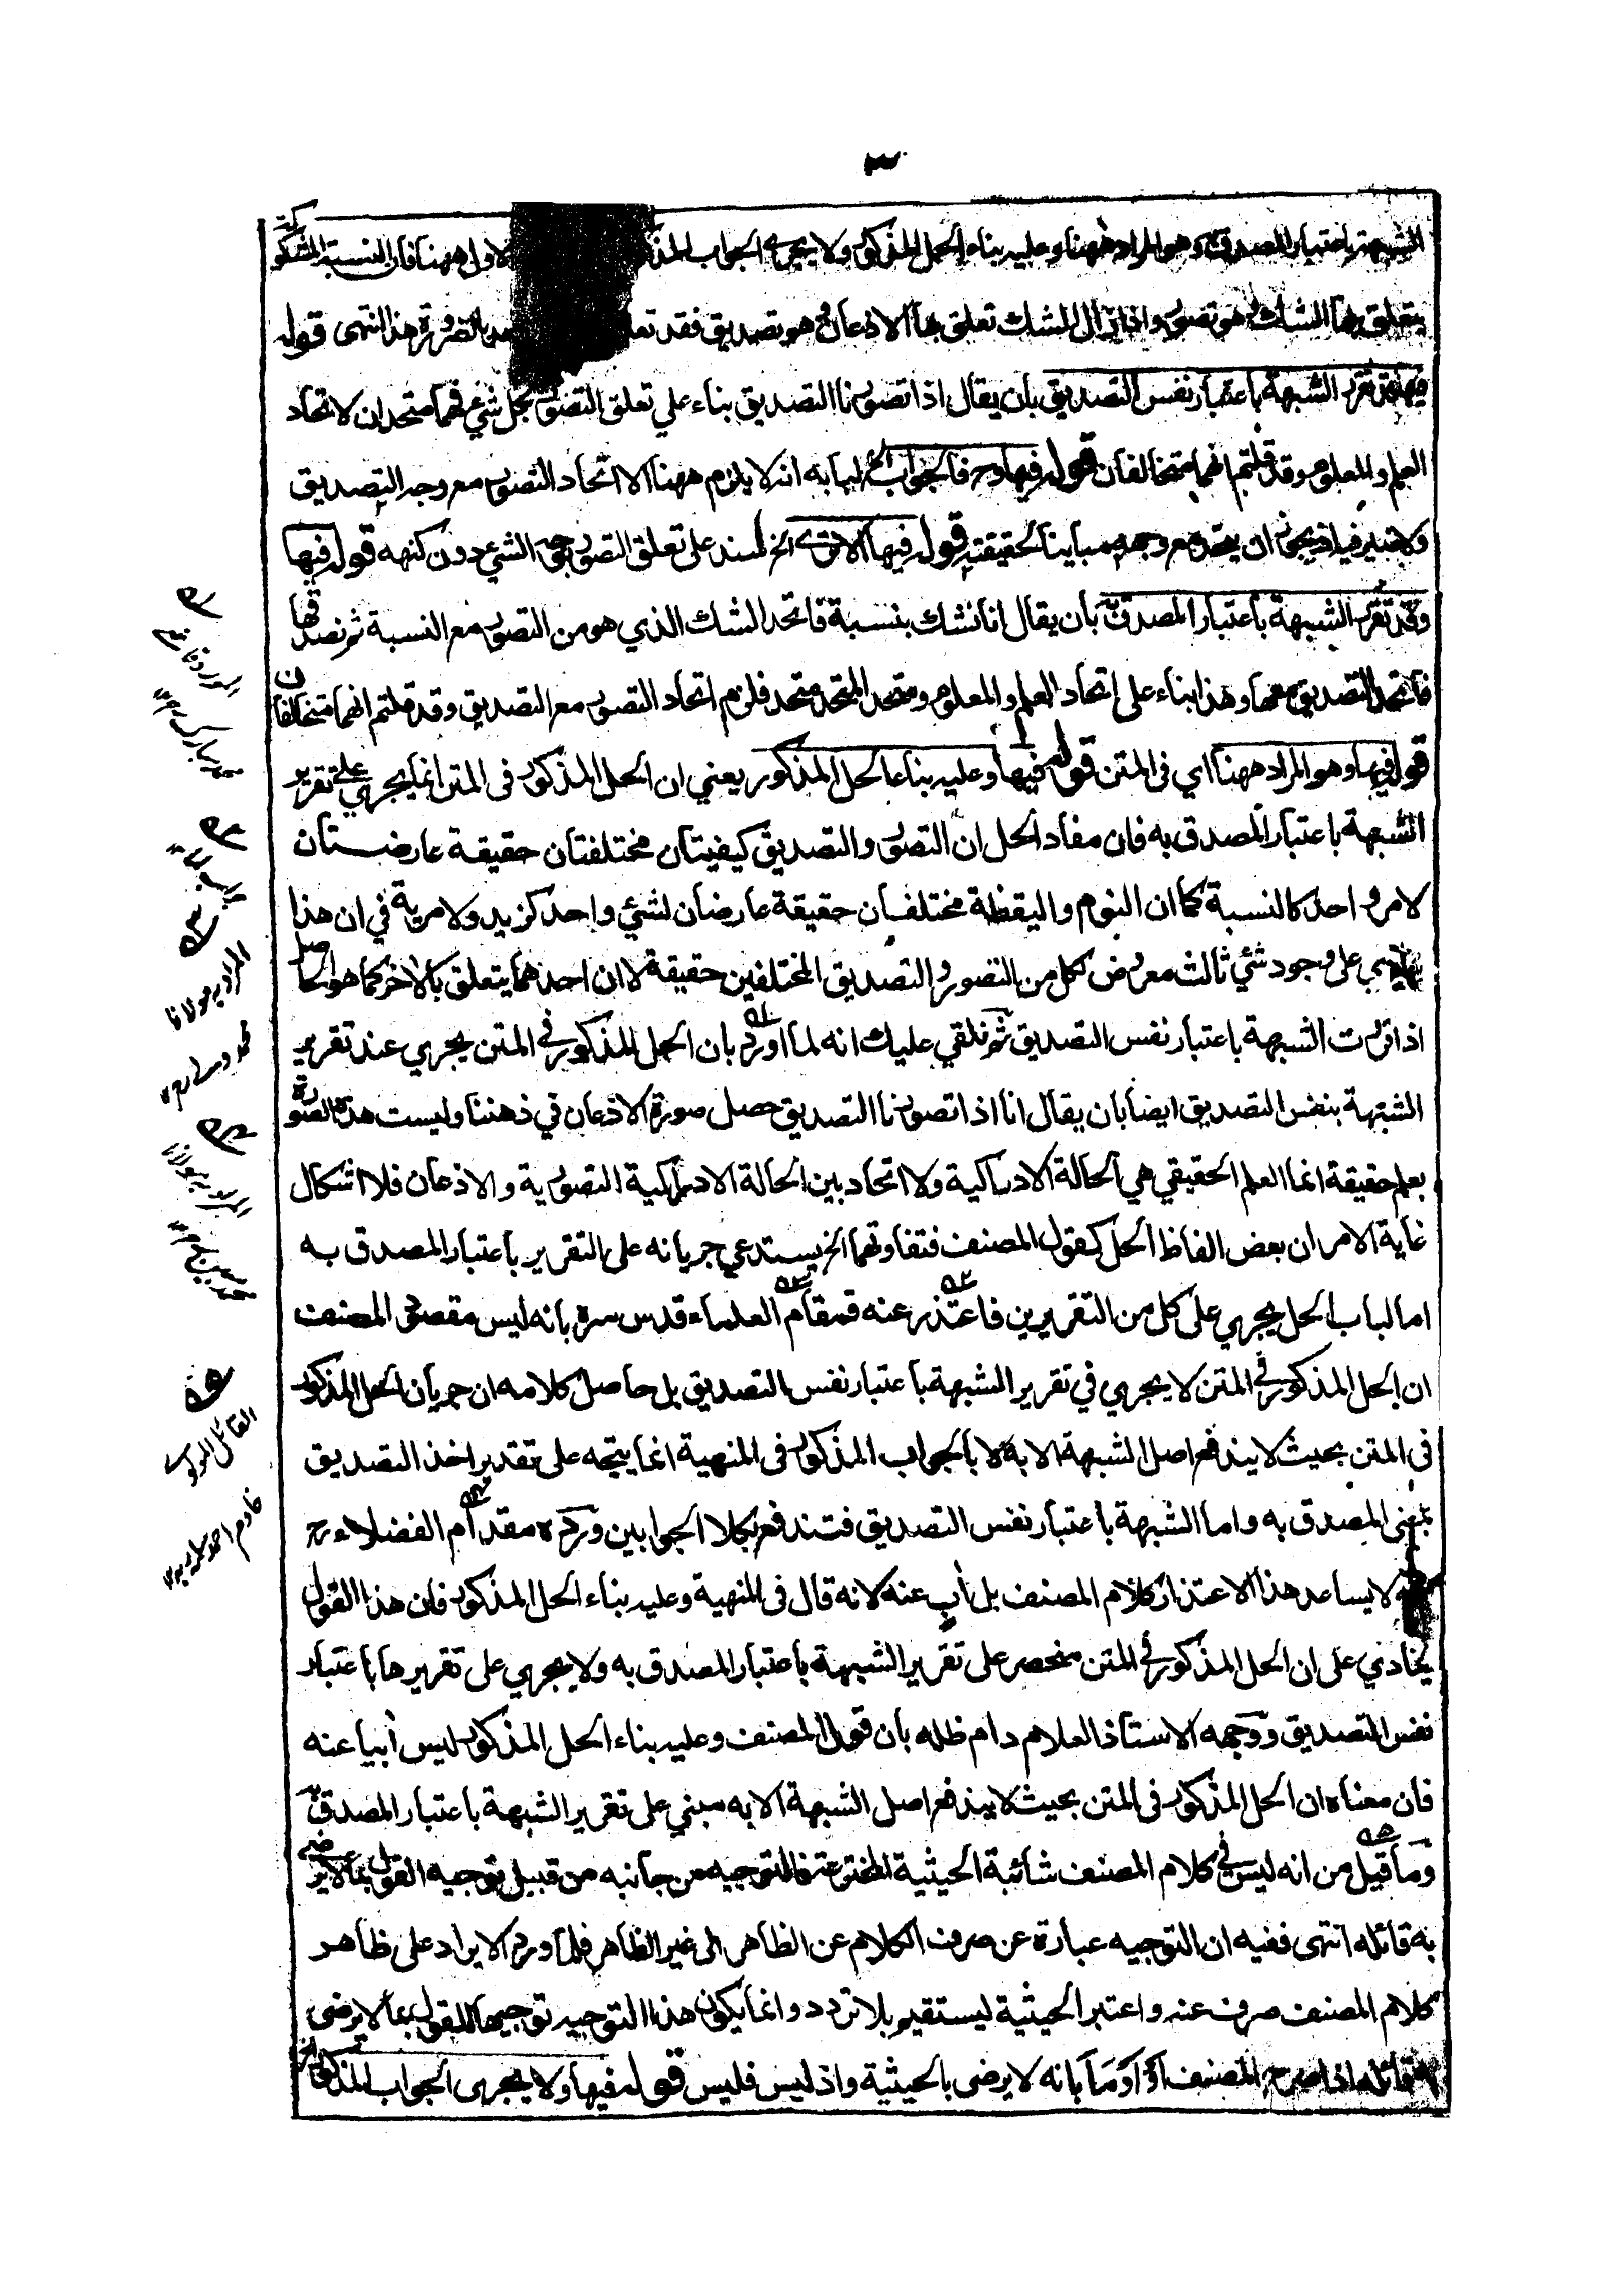 ٣
الشبهة باعتبار المصدق به وهو المراد ههنا وعليه بناء الحل المذكور ولا يجري الجواب المذكور الاول ههنا فان النسبة المشكوكة
يتعلق بها الشك وهو تصور واذا زال الشك تعلق بها الاذعان وهو تصديق فقد تعلق بالضرورة هذا انتهى قوله
فيها قد تقرر الشبهة باعتبار نفس التصديق بان يقال اذا تصورنا التصديق بناء علي تعلق التصور بكل شئ فهما متحدان لاتحاد
العلم والمعلوم وقد قلتم انهما متخالفان قوله فيها وح فالجواب الخ لبابه انه لا يلزم ههنا الا اتحاد التصور مع وجه التصديق
ولا ضير فيه اذ يجوز ان يتحد مع وجهه مباينا لحقيقته قوله فيها الا ترى الخ سند على تعلق التصور بوجه الشئ دون كنهه قوله فيها
وقد تقرر الشبهة باعتبار المصدق به بان يقال انا نشك بنسبة فاتحد الشك الذي هو من التصور مع النسبة ثم نصدقها
فاتحد التصديق معها وهذا بناء على اتحاد العلم والمعلوم ومتحد المتحد متحد فلزم اتحاد التصور مع التصديق وقد قلتم انهما متخالفان
قوله فيها وهو المراد ههنا اي فى المتن قوله فيها وعليه بناء الحل المذكور يعني ان الحل المذكور فى المتن انما يجري على تقرير
الشبهة باعتبار المصدق به فان مفاد الحل ان التصور والتصديق كيفيتان مختلفتان حقيقة عارضتان
لامر واحد كالنسبة كما ان النوم واليقظة مختلفان حقيقة عارضان لشئ واحد كزيد ولا مرية في ان هذا
يبتني على وجود شئ ثالث معروض لكل من التصور والتصديق المختلفين حقيقة لا ان احدهما يتعلق بالآخر كما هو الحاصل
اذا قررت الشبهة باعتبار نفس التصديق ثم نلقي عليك انه لما اورد بان الحل المذكور في المتن يجري عند تقرير
الشبهة بنفس التصديق ايضا بان يقال انا اذا تصورنا التصديق حصل صورة الاذعان في ذهننا وليست هذه الصورة
بعلم حقيقة انما العلم الحقيقي هي الحالة الادراكية ولا اتحاد بين الحالة الادراكية التصورية والاذعان فلا اشكال
غاية الامر ان بعض الفاظ الحل كقول المصنف فتفاوتهما الخ يستدعي جريانه على التقرير باعتبار المصدق به
اما لباب الحل يجري على كل من التقريرين فاعتذر عنه قمقام العلماء قدس سره بانه ليس مقصود المصنف
ان الحل المذكور في المتن لا يجري في تقرير الشبهة باعتبار نفس التصديق بل حاصل كلامه ان جريان الحل المذكور
فى المتن بحيث لا يندفع اصل الشبهة الا به لا بالجواب المذكور فى المنهية انما يتجه على تقدير اخذ التصديق
بمعنى المصدق به واما الشبهة باعتبار نفس التصديق فتندفع بكلا الجوابين ورده مقدام الفضلاء رح
لا يساعد هذا الاعتذار كلام المصنف بل أبٍ عنه لانه قال فى المنهية وعليه بناء الحل المذكور فان هذا القول
ينادي على ان الحل المذكور في المتن منحصر على تقرير الشبهة باعتبار المصدق به ولا يجري على تقريرها باعتبار
نفس التصديق ووجهه الاستاذ العلام دام ظله بان قول المصنف وعليه بناء الحل المذكور ليس أبيا عنه
فان معناه ان الحل المذكور فى المتن بحيث لا يندفع اصل الشبهة الا به مبني على تقرير الشبهة باعتبار المصدق به
وما قيل من انه ليس في كلام المصنف شائبة الحيثية المخترعة فالتوجيه من جانبه من قبيل توجيه القول بما لا يرضى
به قائله انتهى ففيه ان التوجيه عبارة عن صرف الكلام عن الظاهر الى غير الظاهر فلما ورد الايراد على ظاهر
كلام المصنف صرف عنه واعتبر الحيثية ليستقيم بلا تردد وانما يكون هذا التوجيه توجيها للقول بما لا يرضى
به قائله اذا صرح المصنف او اومأ بانه لا يرضى بالحيثية واذ ليس فليس قوله فيها ولا يجري الجواب المذكور الخ
المراد به مولانا
القائل المولوي
خادم احمد